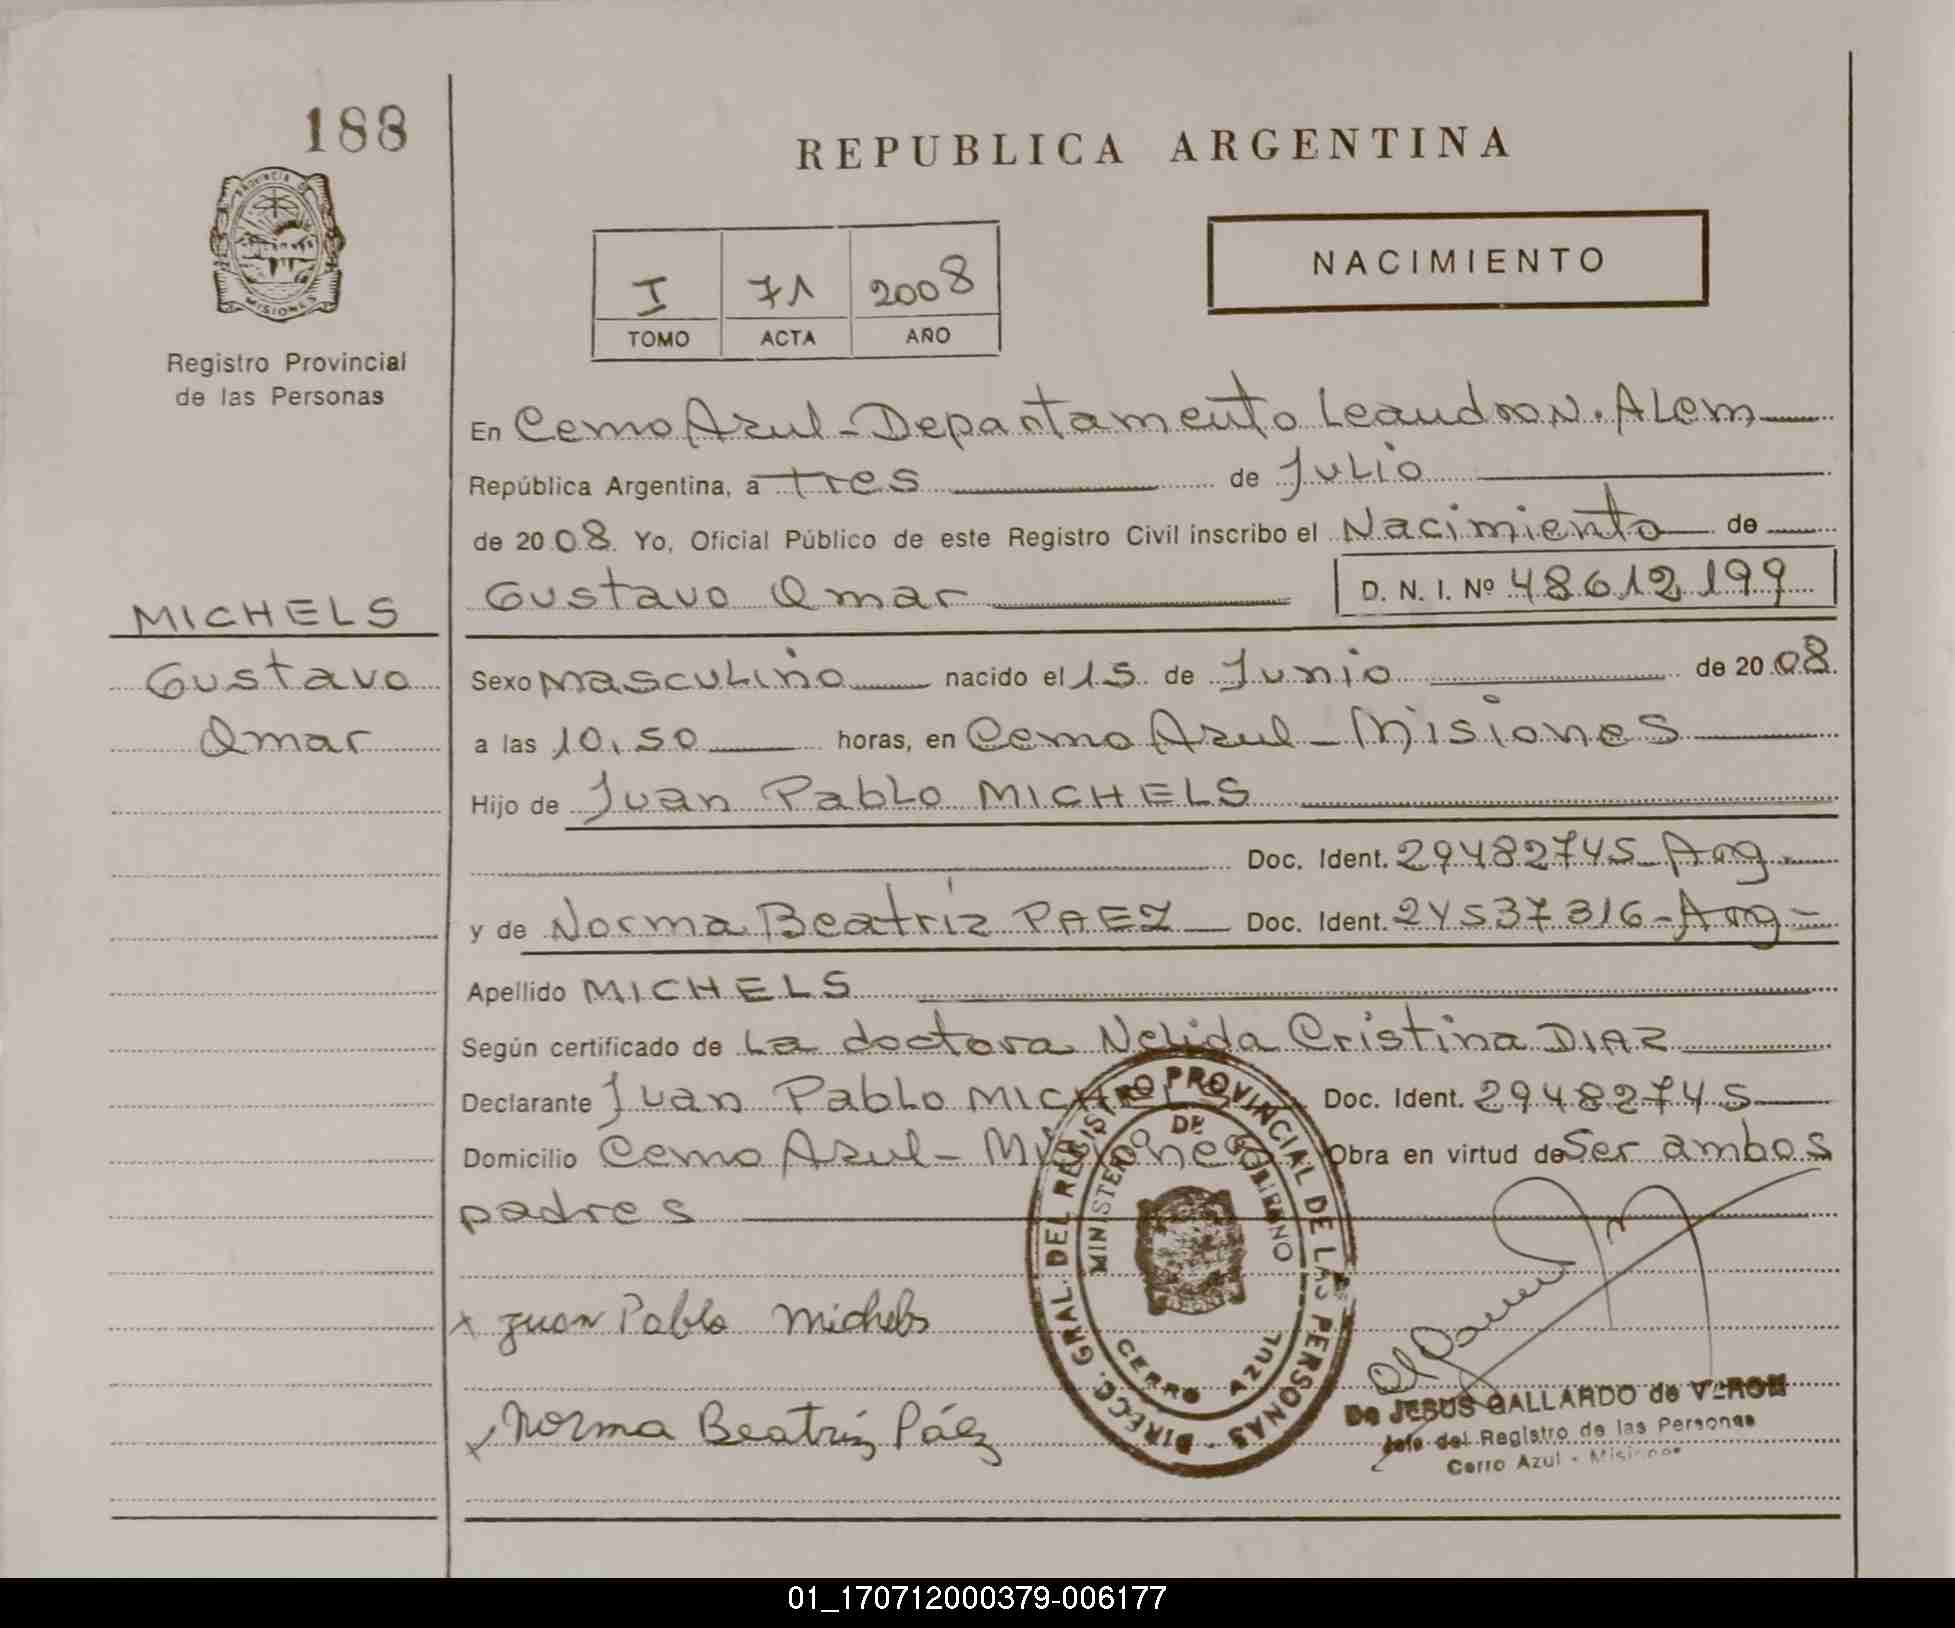 188
REPUBLICA ARGENTINA
PROVINCIA DE
MISIONES
Registro Provincial
de las Personas
NACIMIENTO
I 71 2008
TOMO ACTA AÑO
En Cerro Azul - Departamento Leandro N. ALem
República Argentina, a tres de JuLio
de 2008. Yo, Oficial Público de este Registro Civil inscribo el Nacimiento de
Gustavo Omar D. N. I. Nº 48612199
MICHELS
Gustavo
Omar
Sexo MascuLino nacido el 15 de Junio de 2008
a las 10,50 horas, en Cerro Azul - Misiones
Hijo de Juan PabLo MICHELS
Doc. Ident. 29482745 - Arg -
y de Norma Beatriz PAEZ Doc. Ident. 24537316 - Arg -
Apellido MICHELS
Según certificado de La doctora Nelida Cristina DIAZ
Declarante Juan PabLo MICHELS Doc. Ident. 29482745
Domicilio Cerro Azul - Misiones Obra en virtud de Ser ambos
padres
x Juan Pablo Michels
x Norma Beatriz Páez
DIRECC. GRAL. DEL REGISTRO PROVINCIAL DE LAS PERSONAS -
MINISTERIO DE GOBIERNO
CERRO AZUL
De JESUS GALLARDO de VERON
Jefe del Registro de las Personas
Cerro Azul - Misiones
01_170712000379-006177